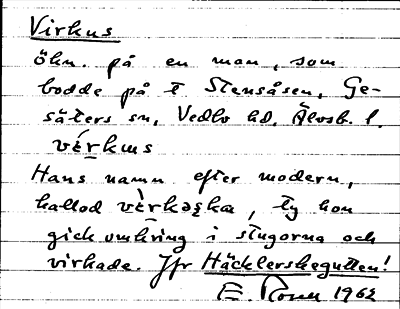 Virkus
ökn. på en man, som
bodde på t Stensåsen, Ge-
säters sn, Vedbo hd, Älvsb. l.
Hans namn efter modern,
kallad, ty hon
gick omkring i stugorna och
virkade. Jfr Häcklerskegutten!
E. 1962